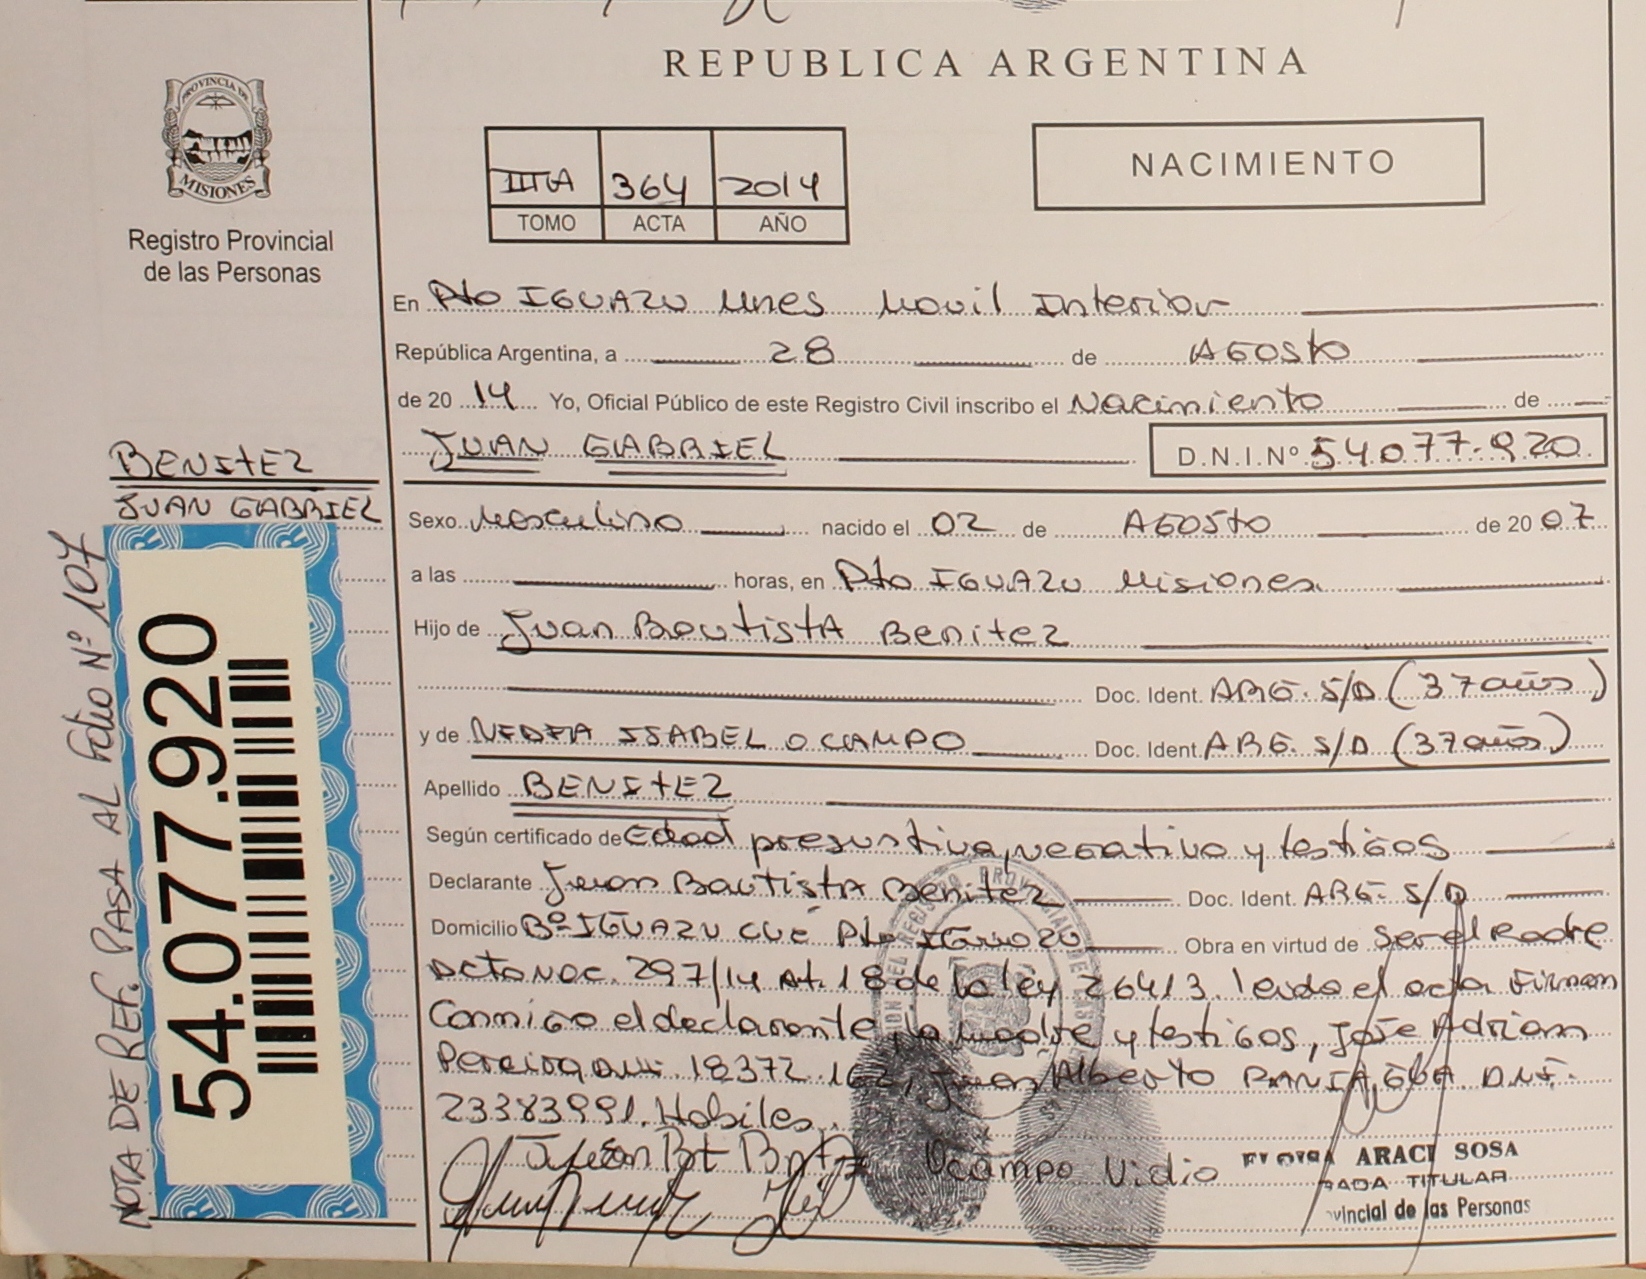 REPUBLICA ARGENTINA
PROVINCIA DE
MISIONES
Registro Provincial
de las Personas
364 2014
TOMO ACTA AÑO
NACIMIENTO
En Pto IGUAZU Mnes Movil Interior
República Argentina, a 28 de AGOSTO
de 2014 Yo, Oficial Público de este Registro Civil inscribo el Nacimiento de
JUAN GABRIEL D.N.I.Nº 54.077.920
BENITEZ
JUAN GABRIEL
Sexo Masculino nacido el 02 de AGOSTO de 2007
a las horas, en Pto IGUAZU Misiones
Hijo de Juan BautistA Benitez
Doc. Ident. ARG. S/D (37 años)
y de ISABEL OCAMPO Doc. Ident. ARG. S/D (37 años)
Apellido BENITEZ
Según certificado de Edad presuntiva, negativo y testigos
Declarante Juan BautistA Benitez Doc. Ident. ARG. S/D
Domicilio Bº IGUAZU CUÉ Pto IGUAZU Obra en virtud de Ser el Padre
297/14 Art. 18 de la ley 26413. leida el acta Firman
Conmigo el declarante la madre y testigos, José Adrian
Pereira 18372.162, Juan Alberto D.N.I.
23383991. Habiles
Ocampo Vidio
ARACI SOSA
TITULAR
vincial de las Personas
54.077.920
NOTA DE REF. PASA AL Folio Nº 107